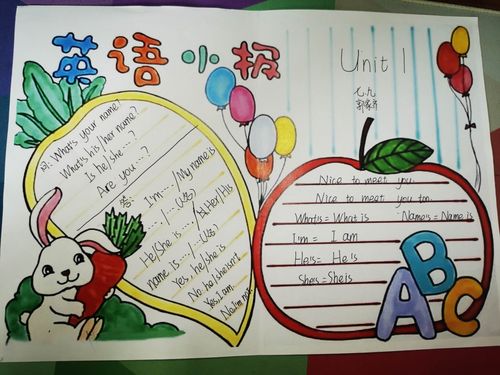 英语小报
Unit 1
七.九
问: What's your name?
What's his/her name?
Is he/she ...?
Are you ...?
答: I'm .../My name is
.../...
He/She is .../Her/His
name is .../
Yes, he/she is
No he/she isn't
Yes, I am.
No I'm not
Nice to meet you.
Nice to meet you too.
What's = What is Name's = Name is
I'm = I am
He's = He is
She's = She is
ABC